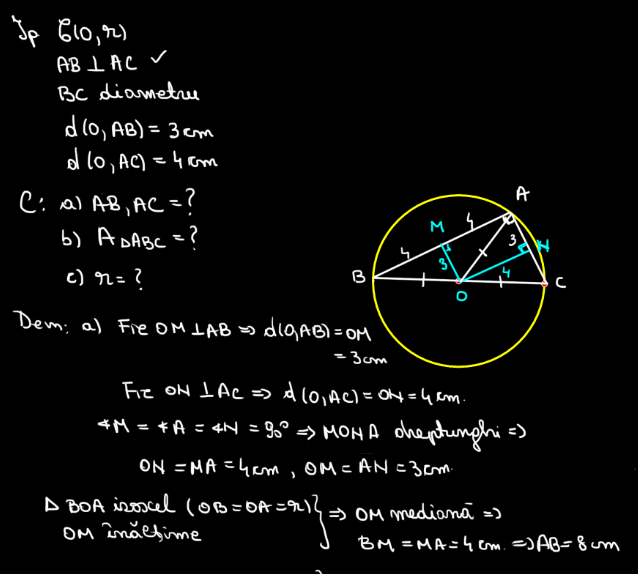 Ip C(O, r)
AB ⊥ AC ✓
BC diametru
d(O, AB) = 3 cm
d(O, AC) = 4 cm
C: a) AB, AC = ?
b) A ΔABC = ?
c) r = ?
A
M
4
4
3
N
3
4
B
C
O
Dem: a) Fie OM ⊥ AB ⇒ d(O,AB) = OM
= 3cm
Fie ON ⊥ AC ⇒ d(O, AC) = ON = 4 cm.
∢M = ∢A = ∢N = 90° ⇒ MONA dreptunghi ⇒
ON = MA = 4cm, OM = AN = 3cm.
Δ BOA isoscel (OB = OA = r) } ⇒ OM mediană ⇒
OM înălțime
BM = MA = 4 cm. ⇒ AB = 8 cm